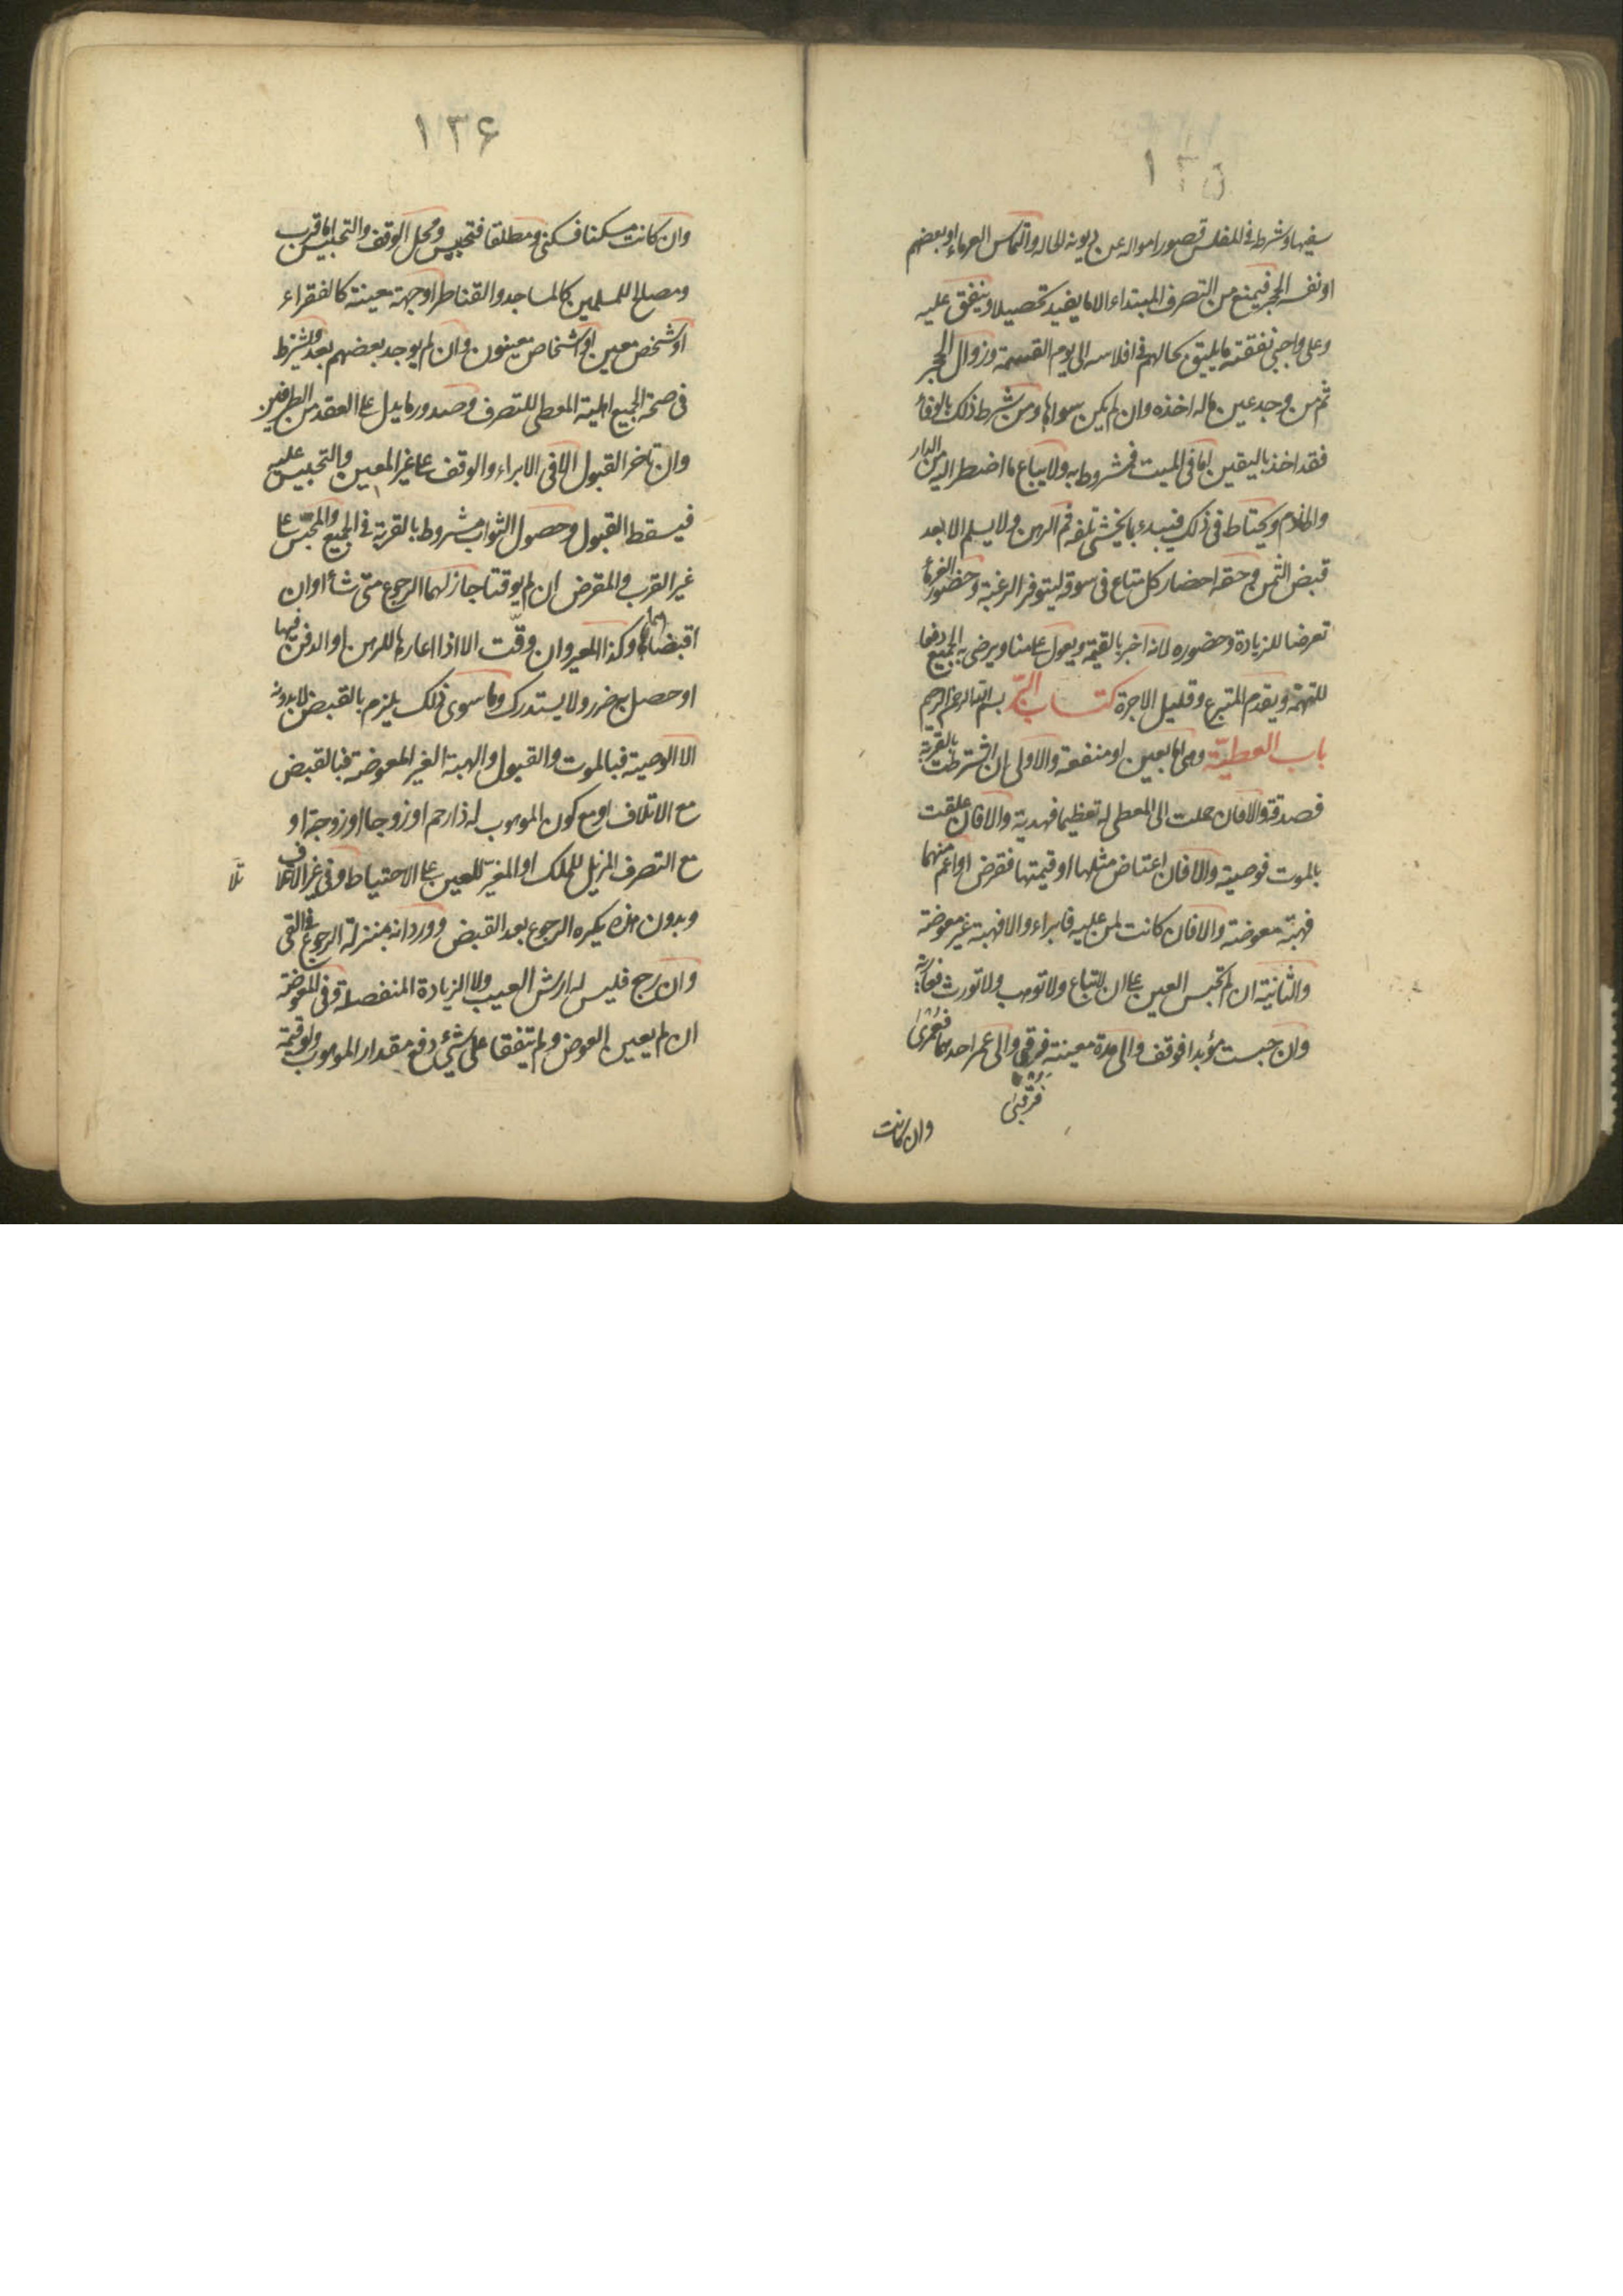 ١٣٥
سفيها وشرط في المفلس قصور امواله عن ديونه الحالة والتماس الغرماء او بعضهم
او نفسه الحجر فيمنع من التصرف المبتداء الا ما يفيد تحصيلا وينفق عليه
وعلى واجبي نفقته ما يليق بحالهم في افلاسه الى يوم القسمة وزوال الحجر
ثم من وجد عين ماله اخذه وان لم يكن سواها ومن شرط ذلك بالوفاء
فقد اخذ باليقين اما في الميت فمشروط به ولا يباع ما اضطر اليه من الدار
والخادم ويحتاط في ذلك فيبدء بما يخشى تلفه ثم الرهن ولا يسلم الا بعد
قبض الثمن وحقه احضار كل متاع في سوقه ليتوفر الرغبة وحضور الغرماء
تعرضا للزيادة وحضوره لانه اخبر بالقيمة ويعول على مناد يرضى به الجميع دفعا
للتهمة ويقدم المتبرع وقليل الاجرة كتاب البر بسم الله الرحمن الرحيم
باب العطية وهي اما بعين او منفعة والاولى ان اشترطت بالقربة
فصدقة والا فان حملت الى المعطى له تعظيما فهدية والا فان علقت
بالموت فوصية والا فان اعتاض مثلها او قيمتها فقرض او اعم منهما
فهبة معوضة والا فان كانت لمن عليه فابراء والا فهبة غير معوضة
والثانية ان لم تحبس العين على ان لا تباع ولا توهب ولا تورث فعارية
وان حبست مؤبدا فوقف والى مدة معينة فرقبى والى عمر احدهما فعمرى
فرقبى
وان كانت
١٣۶
وان كانت مسكنا فسكنى ومطلقا فتحبيس ومحل الوقف والتحبيس اما قرب
ومصلح للمسلمين كالمساجد والقناطر او جهة معينة كالفقراء
او شخص معين او اشخاص معينون وان لم يوجد بعضهم بعد ويشترط
في صحة الجميع اهلية المعطى للتصرف وصدور ما يدل على العقد من الطرفين
وان تاخر القبول الا في الابراء والوقف على غير المعين والتحبيس عليه
فيسقط القبول وحصول الثواب مشروط بالقربة في الجميع والمحبس على
غير القرب والمقرض ان لم يوقتا جاز لهما الرجوع متى شاء او ان
اقبضاهما وكذا المعير وان وقّت الا اذا اعارها للرهن او الدفن فيها
او حصل به ضرر ولا يستدرك وما سوى ذلك يلزم بالقبض لا بدونه
الا الوصية فبالموت والقبول والهبة الغير المعوضة فبالقبض
مع الاتلاف او مع كون الموهوب له ذا رحم او زوجا او زوجة او
مع التصرف المزيل للملك او المغيّر للعين على الاحتياط وفي غير الاتلاف
تلا
وبدون هذه يكره الرجوع بعد القبض وورد انه بمنزلة الرجوع في القى
وان رجع فليس له ارش العيب ولا الزيادة المنفصلة وفي المعوضة
ان لم يعين العوض ولم يتفقا على شيء دفع مقدار الموهوب او قيمة